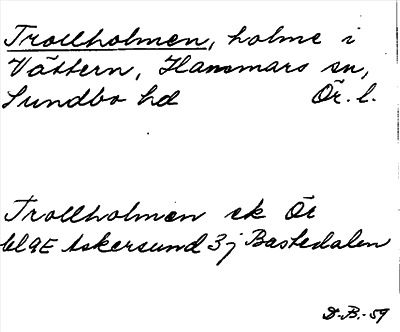 Trollholmen, holme i
Vättern, Hammars sn,
Sundbo hd Ör. l.
Trollholmen ek Ör
bl 9E Askersund 3j Bastedalen
D.-B.-59